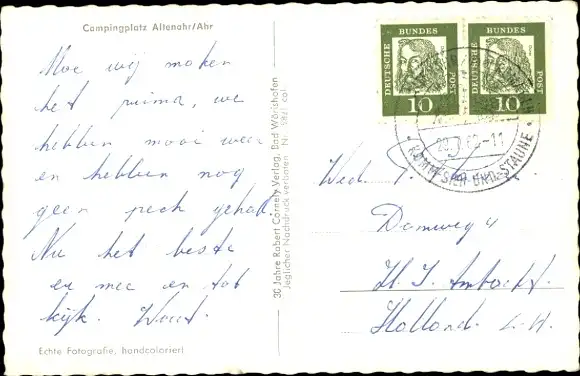 Campingplatz Altenahr/Ahr
Moe wij maken
het prima, we
hebben mooi weer
en hebben nog
geen pech gehad.
Nu het beste
er mee en tot
kijk. Wout.
Echte Fotografie, handcoloriert
30 Jahre Robert Cornely Verlag, Bad Wörishofen
Jeglicher Nachdruck verboten Nr. col.
DEUTSCHE BUNDES POST
10
DEUTSCHE BUNDES POST
10
62-11
KOMM-SIEH-UND-STAUNE
Wed. P.
Domweg 4
H. I. Ambacht.
Holland. Z.-H.